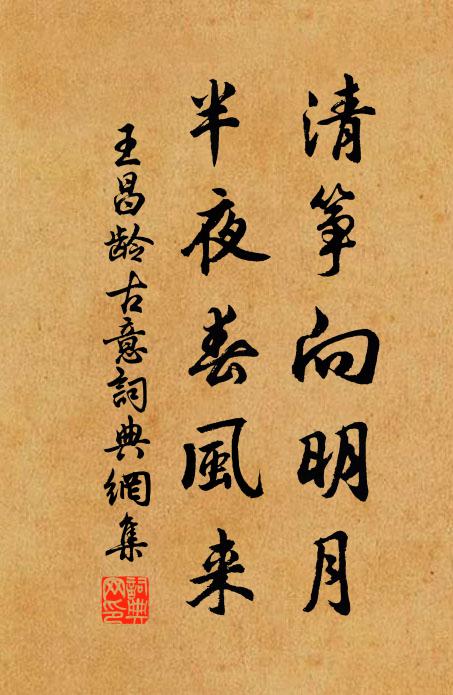 清筝向明月
半夜春風来
王昌龄古意詞典網集
詞典
网印